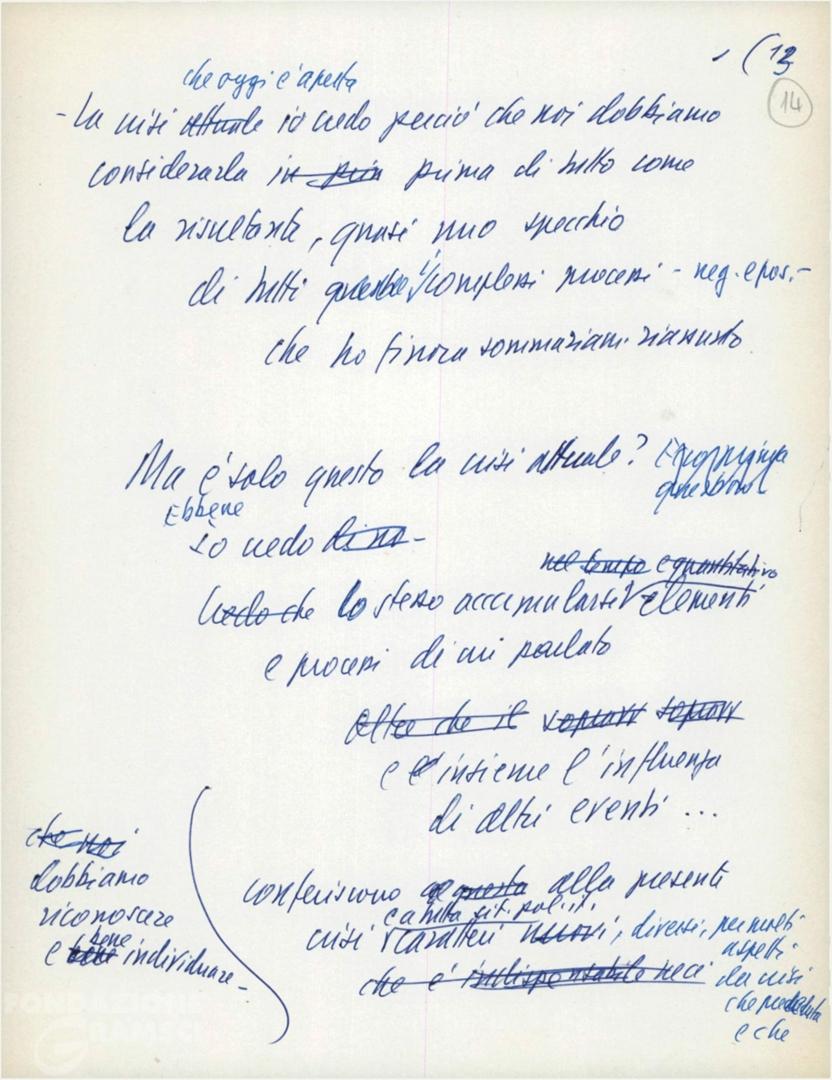 (13
14
che oggi è aperta
- La crisi attuale io credo perciò che noi dobbiamo
considerarla in più prima di tutto come
la risultante, quasi uno specchio
di tutti complessi processi - neg. e pos. -
che ho finora sommariam. riassunto
Ma è solo questo la crisi attuale? E propria
questione
Ebbene
Io credo di no -
nel tempo e quantitativo
Credo che lo stesso accumularsi elementi
e processi di cui parlato
Oltre che il sopravv sopravv
e l'insieme l'influenza
di altri eventi ...
che noi
dobbiamo
riconoscere
bene
e bene individuare -
conferiscono a questa alla presente
e a tutta sit. polit.
crisi caratteri nuovi, diversi, per molti
aspetti
che è indispensabile neci
da crisi
che preceduta
e che
FONDAZIONE
GRAMSCI